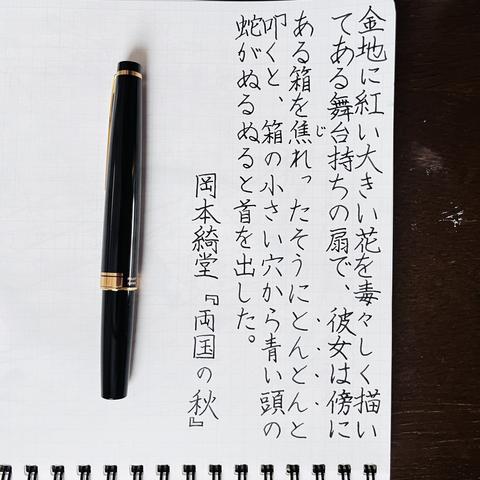 金地に紅い大きい花を毒々しく描い
てある舞台持ちの扇で、彼女は傍に
ある箱を焦れったそうにとんとんと
じ
叩くと、箱の小さい穴から青い頭の
蛇がぬるぬると首を出した。
岡本綺堂『両国の秋』